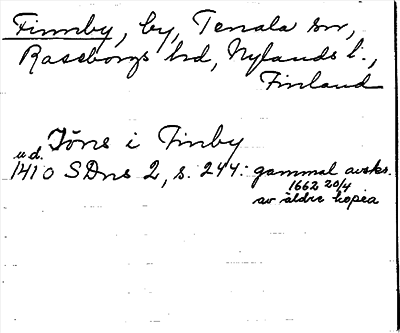 Finnby, by, Tenala sn,
Raseborgs hd, Nylands l.,
Finland
Jöns i Finby
u.d.
1410 SDns 2, s. 244: gammal avskr.
1662 20/4
av äldre kopia